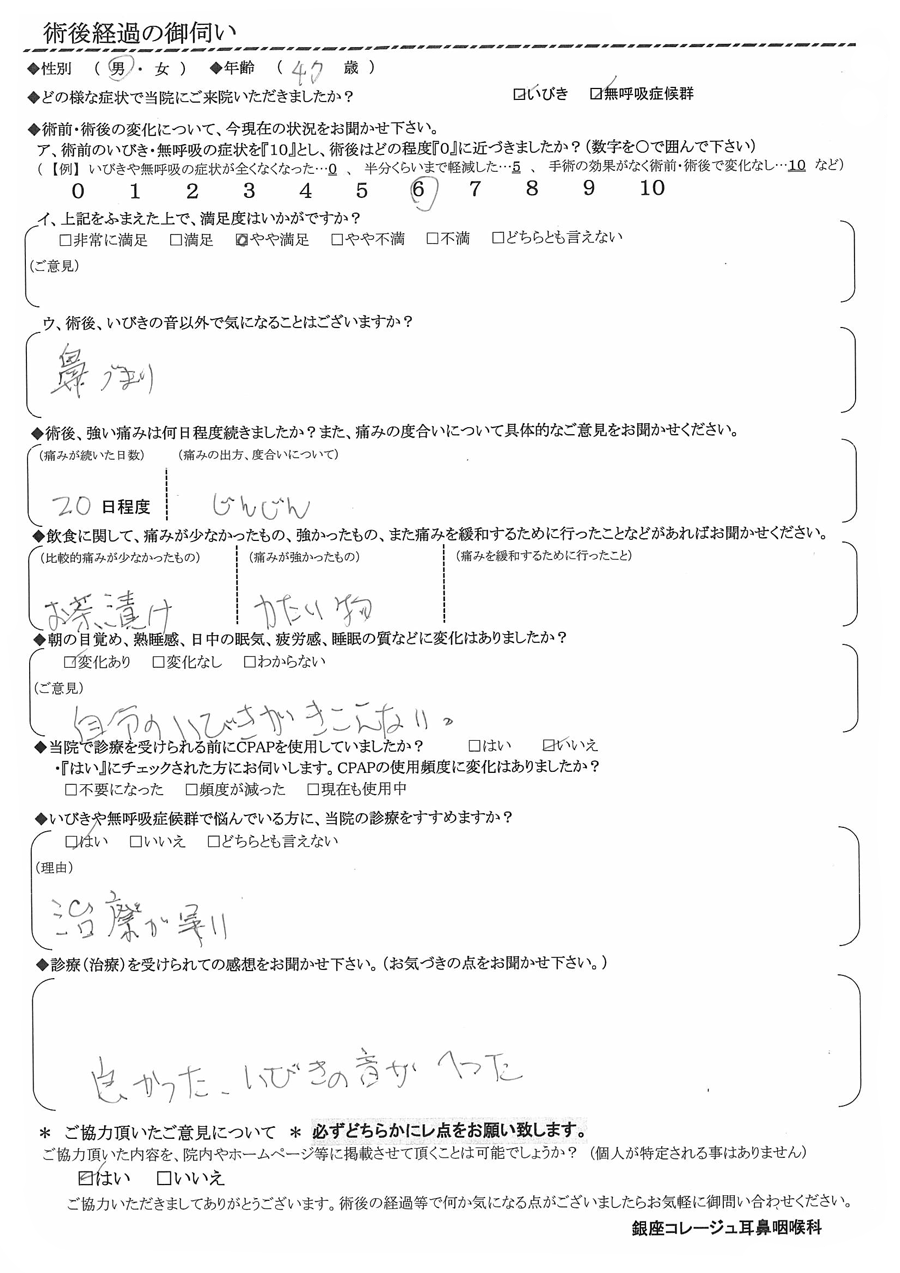 術後経過の御伺い
◆性別 （ 男 ・ 女 ） ◆年齢 （ 47 歳 ）
◆どの様な症状で当院にご来院いただきましたか？ ☑いびき ☑無呼吸症候群
◆術前・術後の変化について、今現在の状況をお聞かせ下さい。
ア、術前のいびき・無呼吸の症状を『10』とし、術後はどの程度『0』に近づきましたか？（数字を〇で囲んで下さい）
（【例】 いびきや無呼吸の症状が全くなくなった…0 、 半分くらいまで軽減した…5 、 手術の効果がなく術前・術後で変化なし…10 など）
0 1 2 3 4 5 6 7 8 9 10
イ、上記をふまえた上で、満足度はいかがですか？
□非常に満足 □満足 ☑やや満足 □やや不満 □不満 □どちらとも言えない
(ご意見)
ウ、術後、いびきの音以外で気になることはございますか？
鼻づまり
◆術後、強い痛みは何日程度続きましたか？また、痛みの度合いについて具体的なご意見をお聞かせください。
(痛みが続いた日数) (痛みの出方、度合いについて)
20 日程度 じんじん
◆飲食に関して、痛みが少なかったもの、強かったもの、また痛みを緩和するために行ったことなどがあればお聞かせください。
(比較的痛みが少なかったもの) (痛みが強かったもの) (痛みを緩和するために行ったこと)
お茶漬け かたい物
◆朝の目覚め、熟睡感、日中の眠気、疲労感、睡眠の質などに変化はありましたか？
☑変化あり □変化なし □わからない
(ご意見)
自分のいびきがきこえない。
◆当院で診療を受けられる前にCPAPを使用していましたか？ □はい ☑いいえ
・『はい』にチェックされた方にお伺いします。CPAPの使用頻度に変化はありましたか？
□不要になった □頻度が減った □現在も使用中
◆いびきや無呼吸症候群で悩んでいる方に、当院の診療をすすめますか？
☑はい □いいえ □どちらとも言えない
(理由)
治療が早い
◆診療(治療)を受けられての感想をお聞かせ下さい。(お気づきの点をお聞かせ下さい。)
良かった、いびきの音がへった
＊ ご協力頂いたご意見について ＊ 必ずどちらかにレ点をお願い致します。
ご協力頂いた内容を、院内やホームページ等に掲載させて頂くことは可能でしょうか？ （個人が特定される事はありません）
☑はい □いいえ
ご協力いただきましてありがとうございます。術後の経過等で何か気になる点がございましたらお気軽に御問い合わせください。
銀座コレージュ耳鼻咽喉科